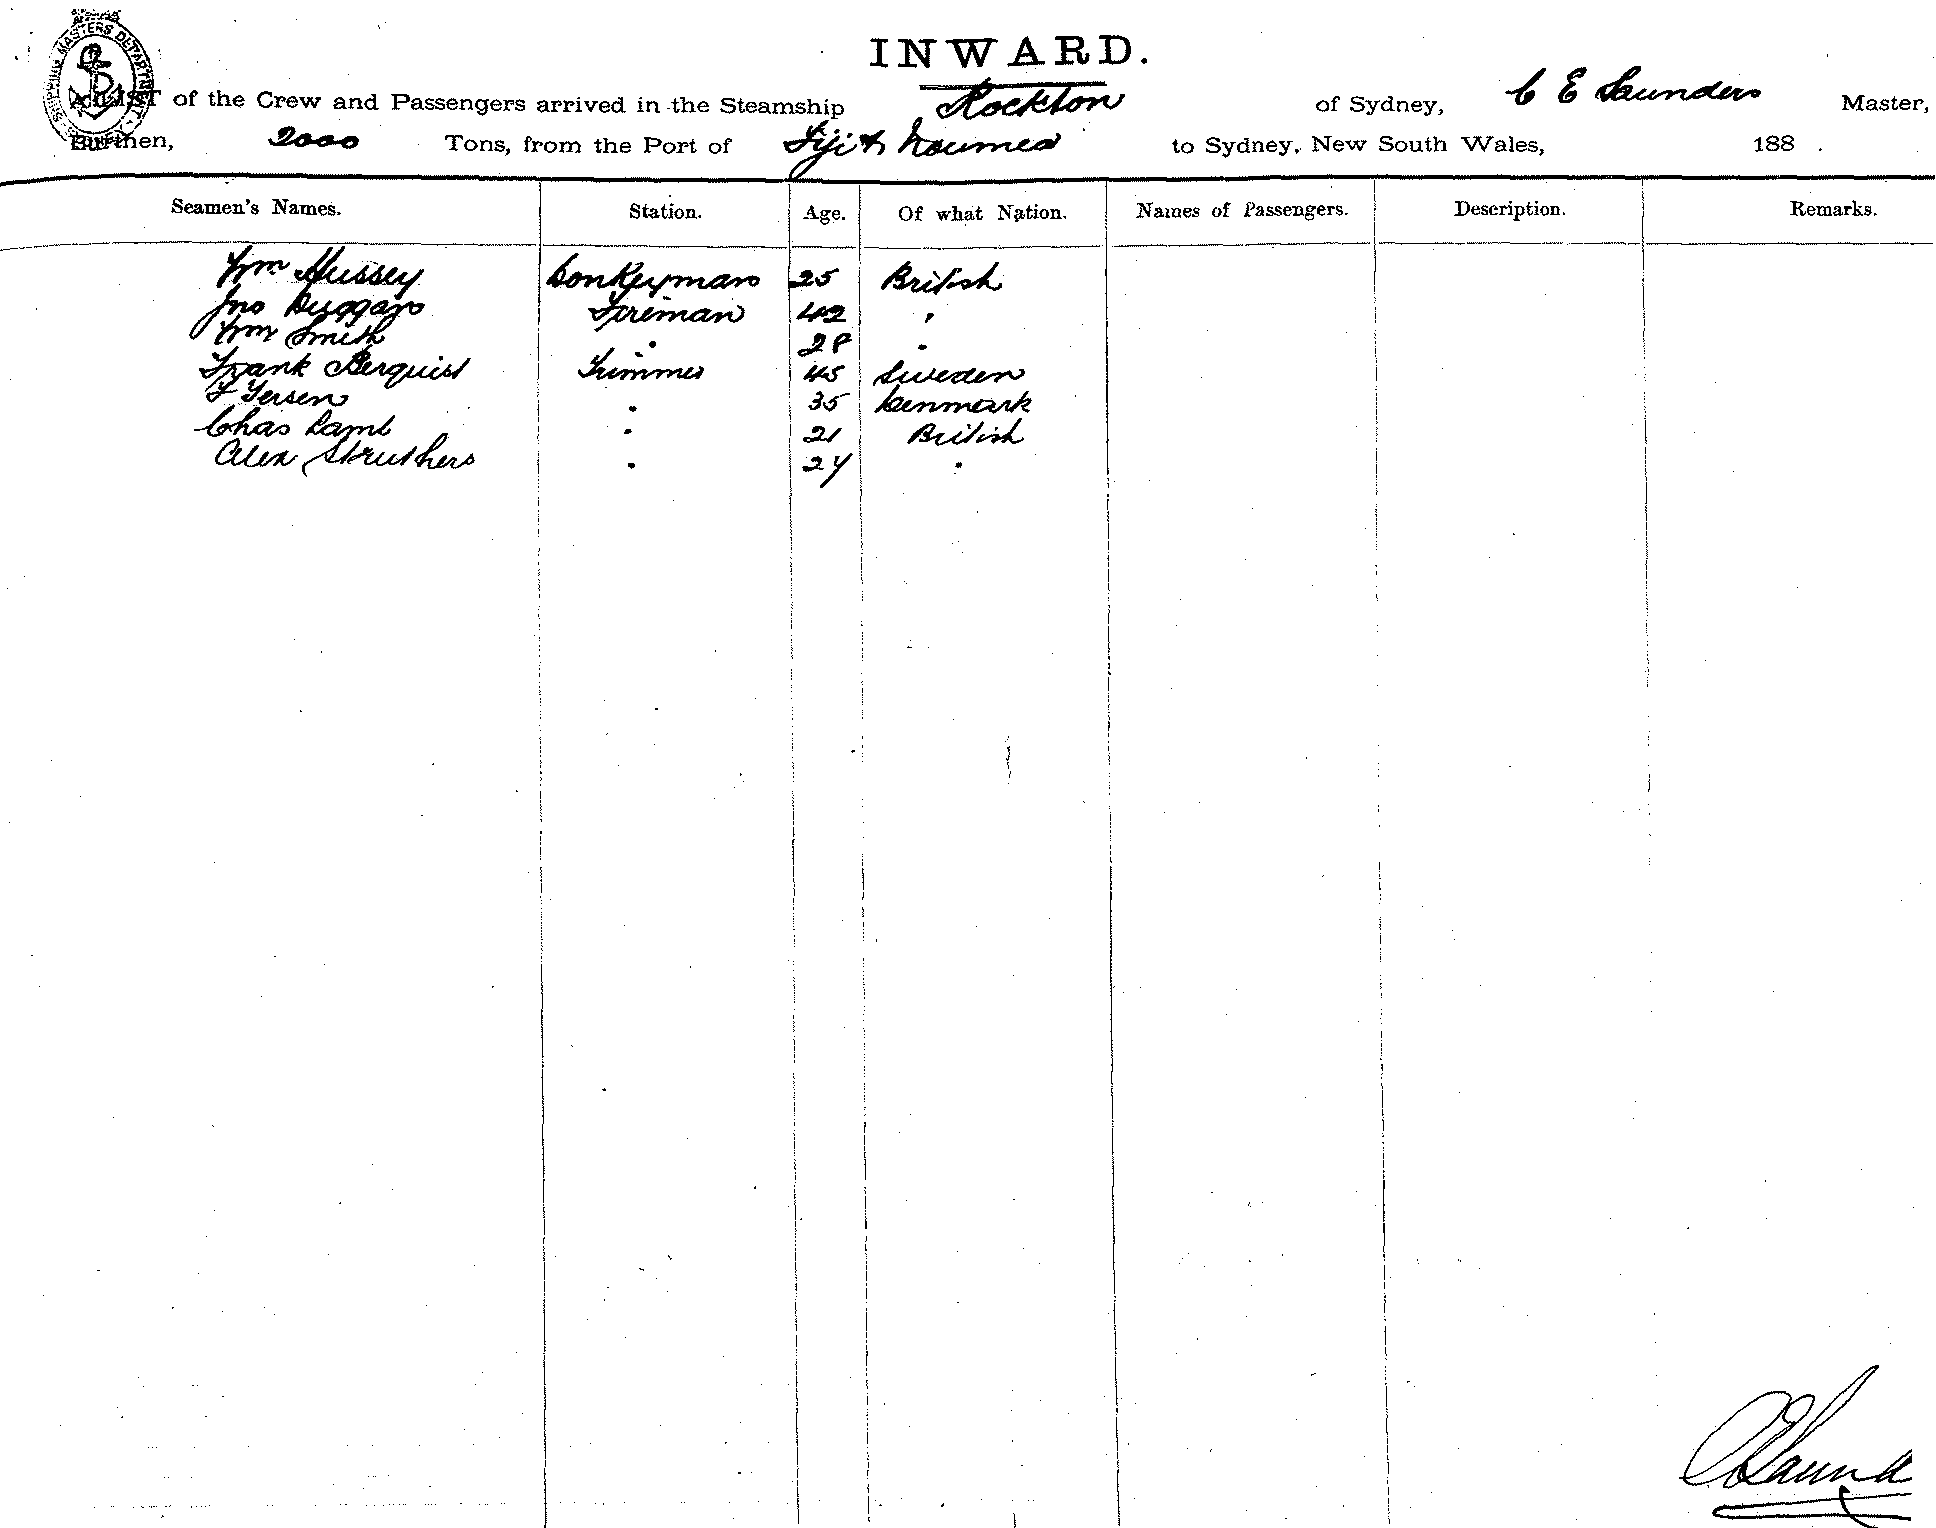 SHIPPING MASTERS DEPARTMENT
INWARD.
A LIST of the Crew and Passengers arrived in the Steamship Rockton of Sydney, C E Saunders Master,
Burthen, 2000 Tons, from the Port of Fiji & Noumea to Sydney, New South Wales, 188 .
Seamen's Names. Station. Age. Of what Nation. Names of Passengers. Description. Remarks.
Wm Hussey Donkeyman 25 British
Jno Duggan Fireman 42 "
Wm Smith " 28 "
Frank Berquist Trimmer 45 Sweden
35 Denmark
Chas Lamb " 21 British
Alex Struthers " 24 "